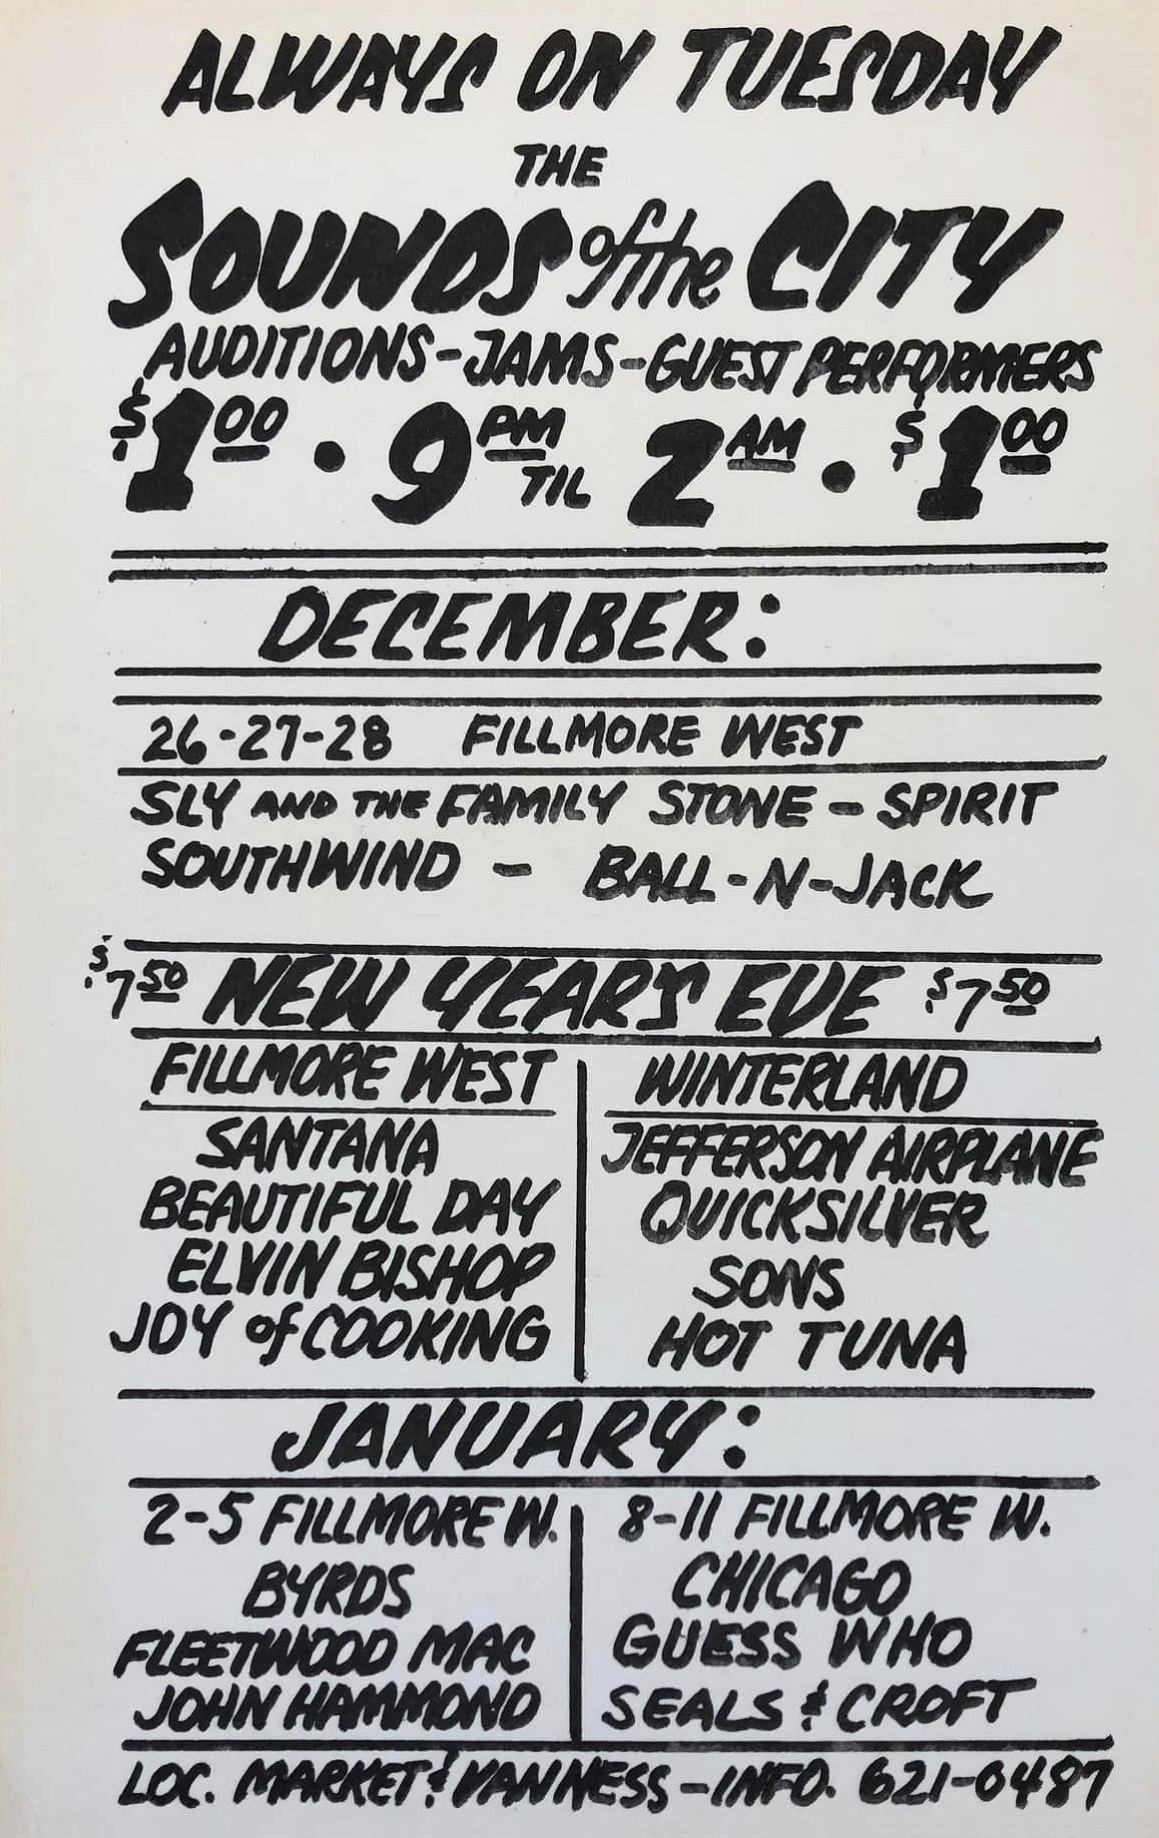 ALWAYS ON TUESDAY
THE
SOUNDS of the CITY
AUDITIONS-JAMS-GUEST PERFORMERS
$1.00 • 9 PM TIL 2 AM • $1.00
DECEMBER:
26-27-28 FILLMORE WEST
SLY AND THE FAMILY STONE - SPIRIT
SOUTHWIND - BALL-N-JACK
$7.50 NEW YEARS EVE $7.50
FILLMORE WEST
SANTANA
BEAUTIFUL DAY
ELVIN BISHOP
JOY of COOKING
WINTERLAND
JEFFERSON AIRPLANE
QUICKSILVER
SONS
HOT TUNA
JANUARY:
2-5 FILLMORE W.
BYRDS
FLEETWOOD MAC
JOHN HAMMOND
8-11 FILLMORE W.
CHICAGO
GUESS WHO
SEALS & CROFT
LOC. MARKET & VAN NESS - INFO. 621-0487